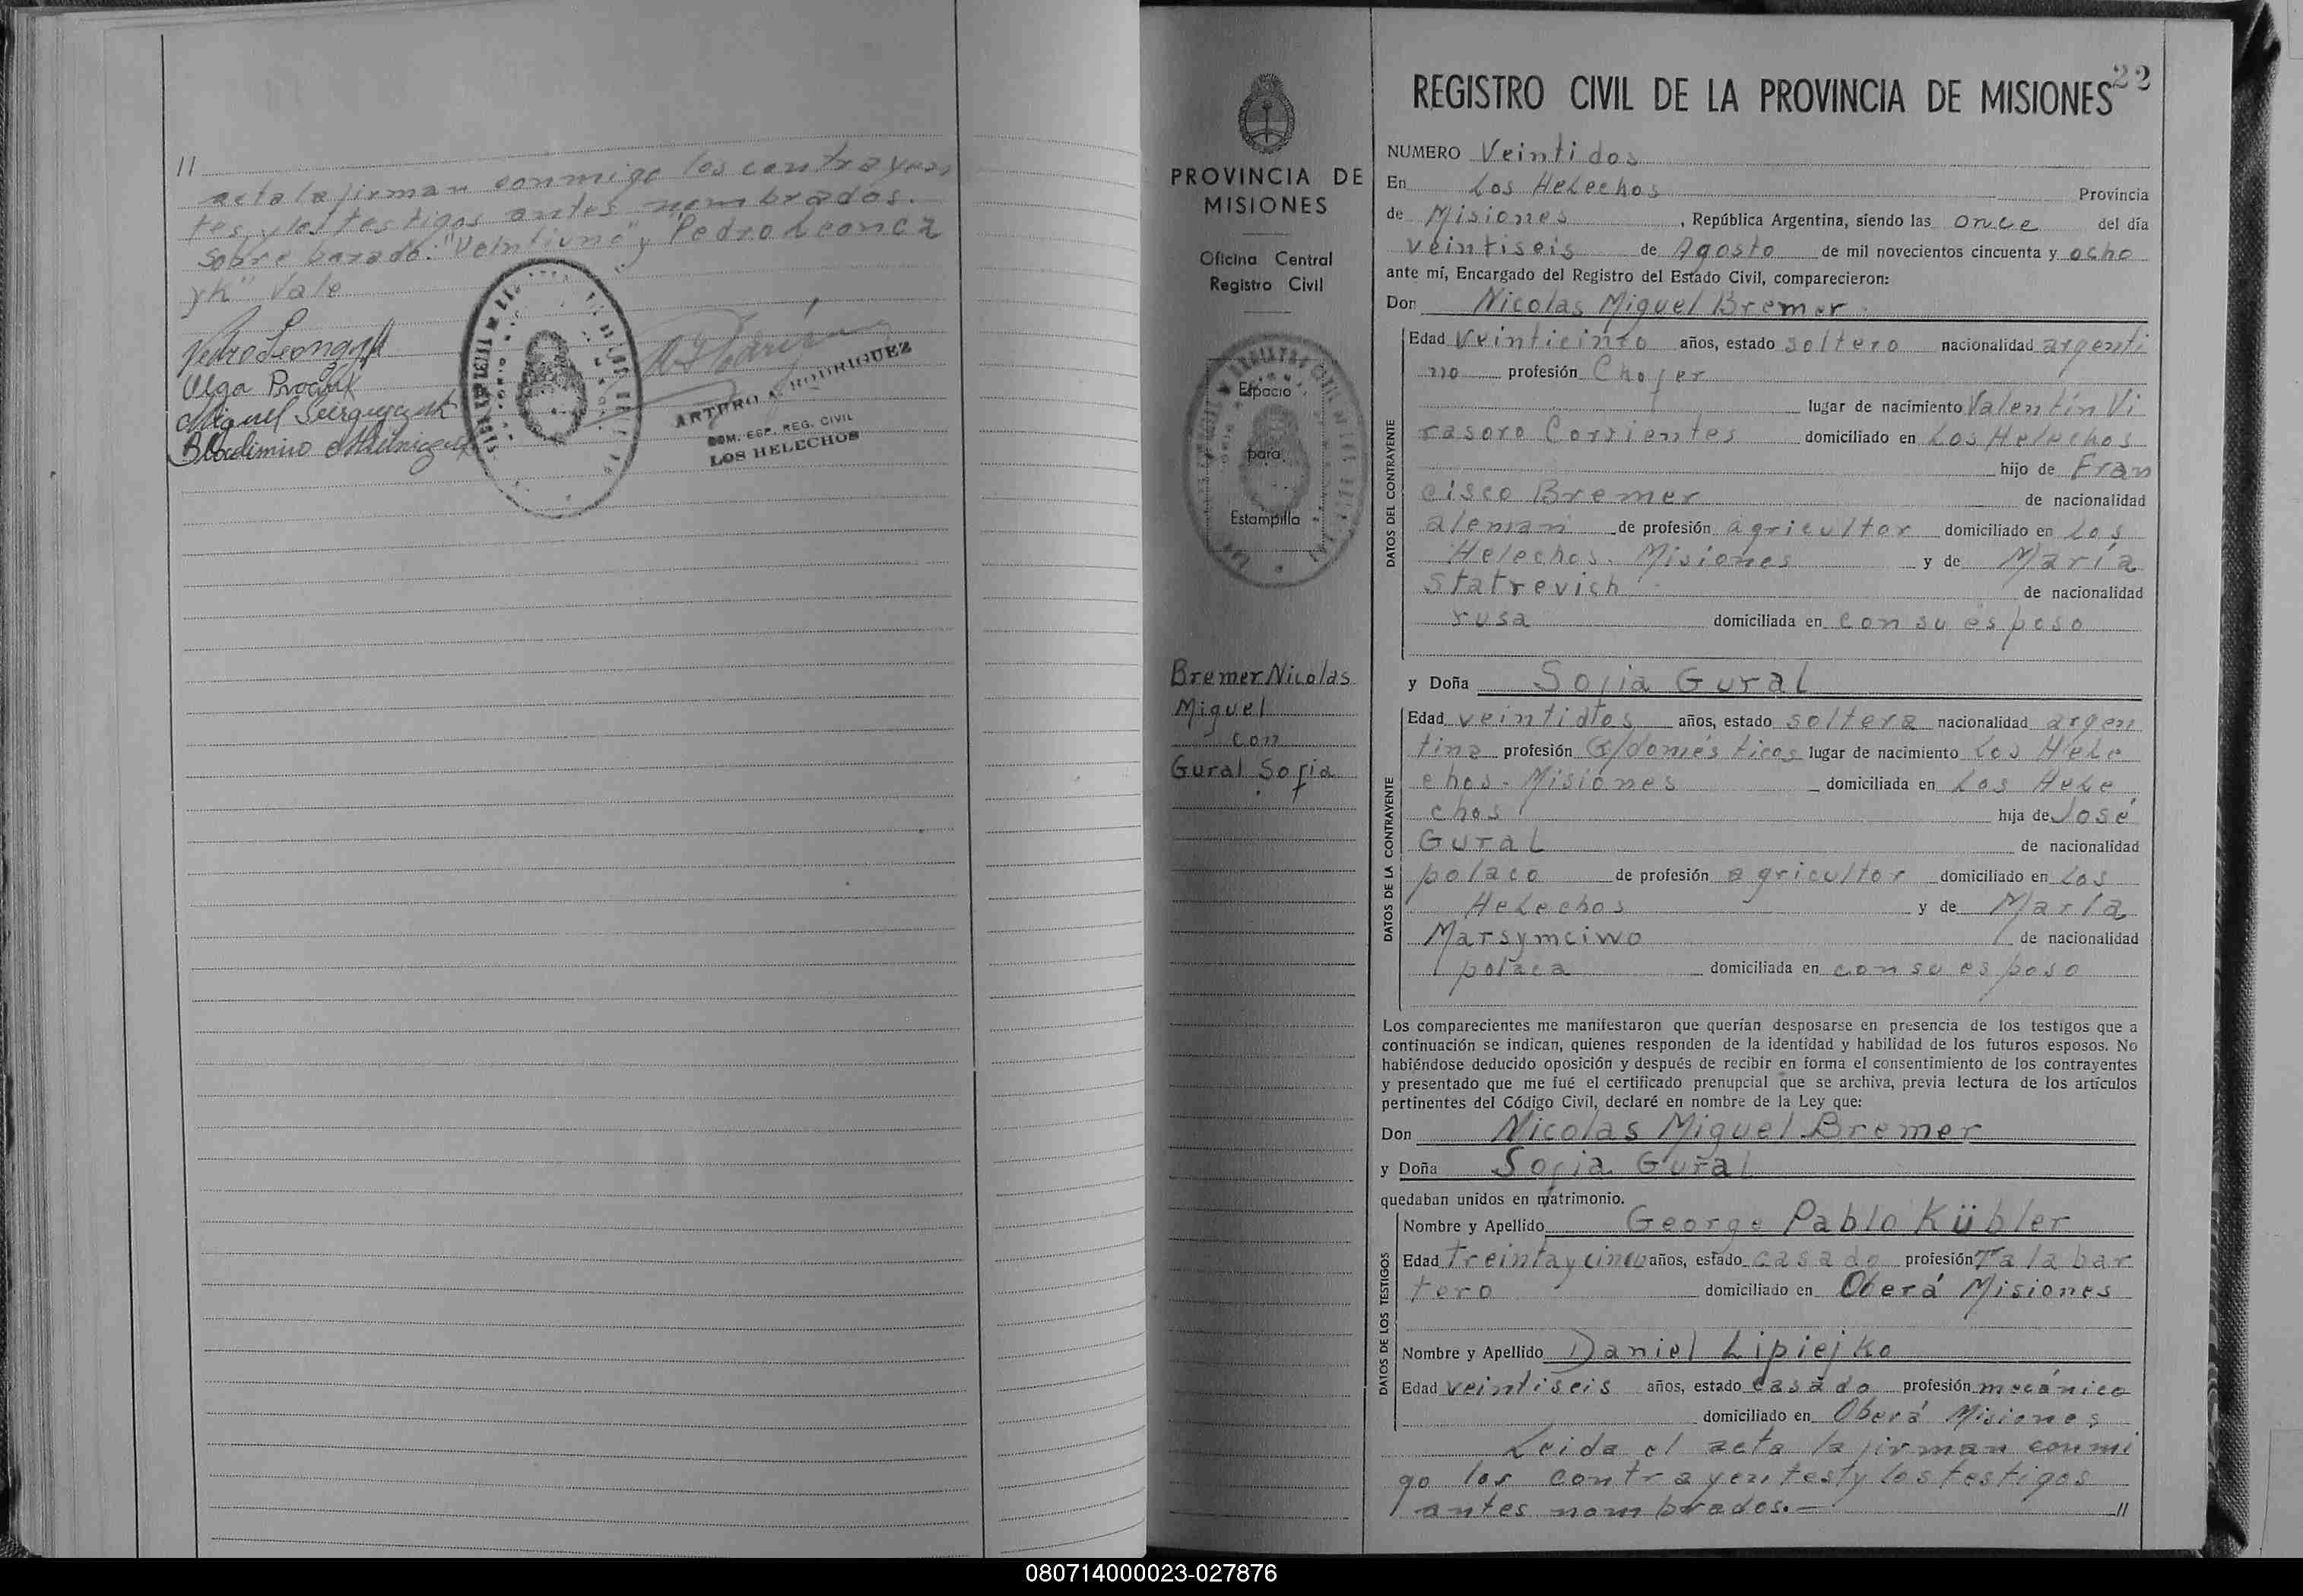 //
acta la firman conmigo los contrayen
tes y los testigos antes nombrados.
Sobre borado: "Veintiuno" y Pedro Leonca
yk" Vale
Olga
Miguel
ARTURO A. RODRIGUEZ
COM. ESP. REG. CIVIL
LOS HELECHOS
PROVINCIA DE
MISIONES
Oficina Central
Registro Civil
Espacio
para
Estampilla
Bremer Nicolas
Miguel
con
Gural Sofia
22
REGISTRO CIVIL DE LA PROVINCIA DE MISIONES
NUMERO Veintidos
En Los Helechos Provincia
de Misiones, República Argentina, siendo las once del día
veintiseis de Agosto de mil novecientos cincuenta y ocho
ante mí, Encargado del Registro del Estado Civil, comparecieron:
Don Nicolas Miguel Bremer
DATOS DEL CONTRAYENTE
Edad Veinticinco años, estado soltero nacionalidad argenti
no profesión Chofer
lugar de nacimiento Valentín Vi
rasoro Corrientes domiciliado en Los Helechos
hijo de Fran
cisco Bremer de nacionalidad
aleman de profesión agricultor domiciliado en Los
Helechos. Misiones y de María
Statrevich de nacionalidad
rusa domiciliada en con su esposo
y Doña Sofia Gural
DATOS DE LA CONTRAYENTE
Edad veintidos años, estado soltera nacionalidad argen
tina profesión Q/domésticos lugar de nacimiento Los Hele
chos. Misiones domiciliada en Los Hele
chos hija de José
Gural de nacionalidad
polaco de profesión agricultor domiciliado en Los
Helechos y de María
Marsymciwo de nacionalidad
polaca domiciliada en con su esposo
Los comparecientes me manifestaron que querían desposarse en presencia de los testigos que a
continuación se indican, quienes responden de la identidad y habilidad de los futuros esposos. No
habiéndose deducido oposición y después de recibir en forma el consentimiento de los contrayentes
y presentado que me fué el certificado prenupcial que se archiva, previa lectura de los artículos
pertinentes del Código Civil, declaré en nombre de la Ley que:
Don Nicolas Miguel Bremer
y Doña Sofia Gural
quedaban unidos en matrimonio.
DATOS DE LOS TESTIGOS
Nombre y Apellido George Pablo Kübler
Edad treinta y cinco años, estado casado profesión Talabar
tero domiciliado en Oberá Misiones
Nombre y Apellido Daniel Lipiejko
Edad veintiseis años, estado casado profesión mecánico
domiciliado en Oberá Misiones
Leida el acta la firman conmi
go los contrayentes y los testigos
antes nombrados.— //
080714000023-027876